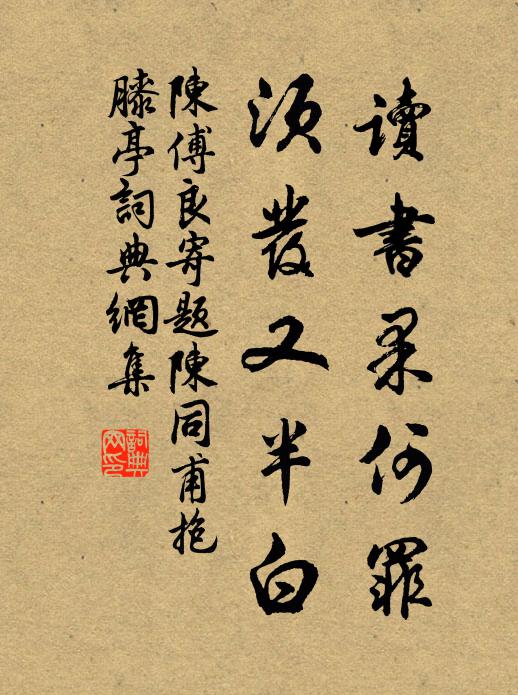 讀書果何罪
須發又半白
陳傅良寄題陳同甫抱
膝亭詞典網集
詞典
网印